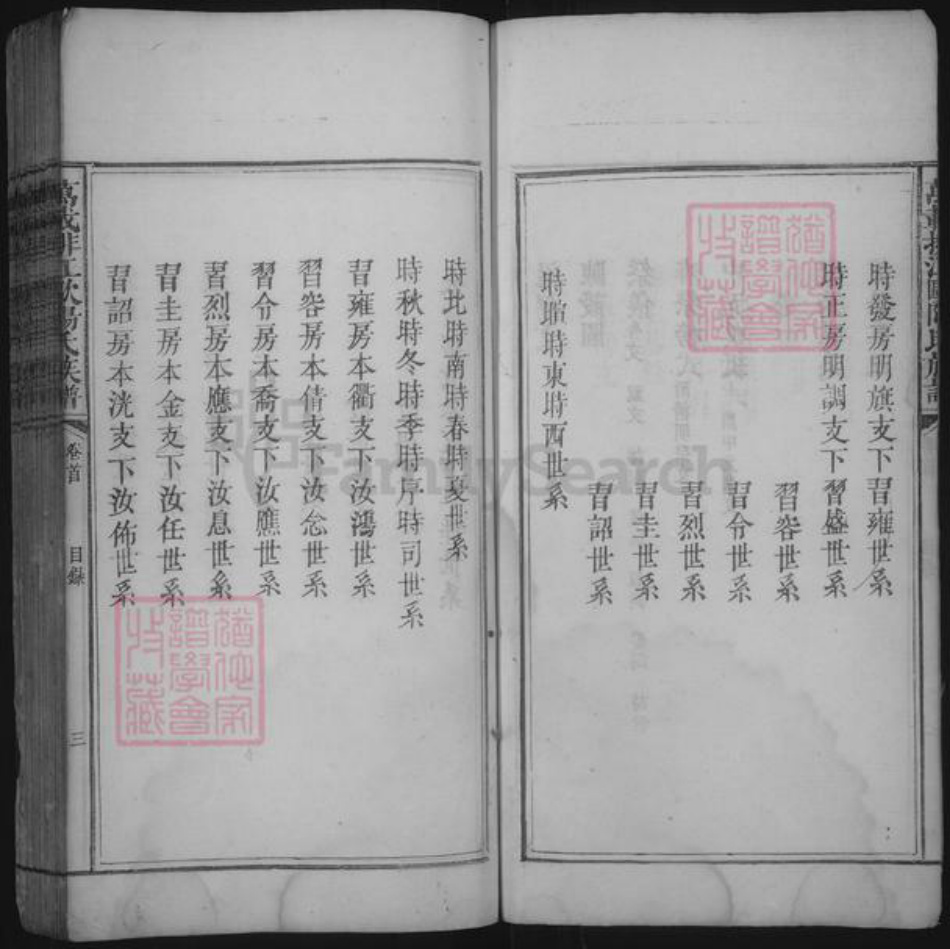 時發房明旗支下習雍世系
時正房明調支下習盛世系
習容世系
習令世系
習烈世系
習圭世系
習詔世系
時暄時東時西世系
時北時南時春時夏世系
時秋時冬時季時序時司世系
習雍房本衢支下汝鴻世系
習容房本倩支下汝念世系
習令房本喬支下汝應世系
習烈房本應支下汝息世系
習圭房本金支下汝任世系
習詔房本洸支下汝佈世系
萬載排江歐陽氏族譜
卷首
目錄
三
FamilySearch
譜學會
收藏
譜學會
收藏